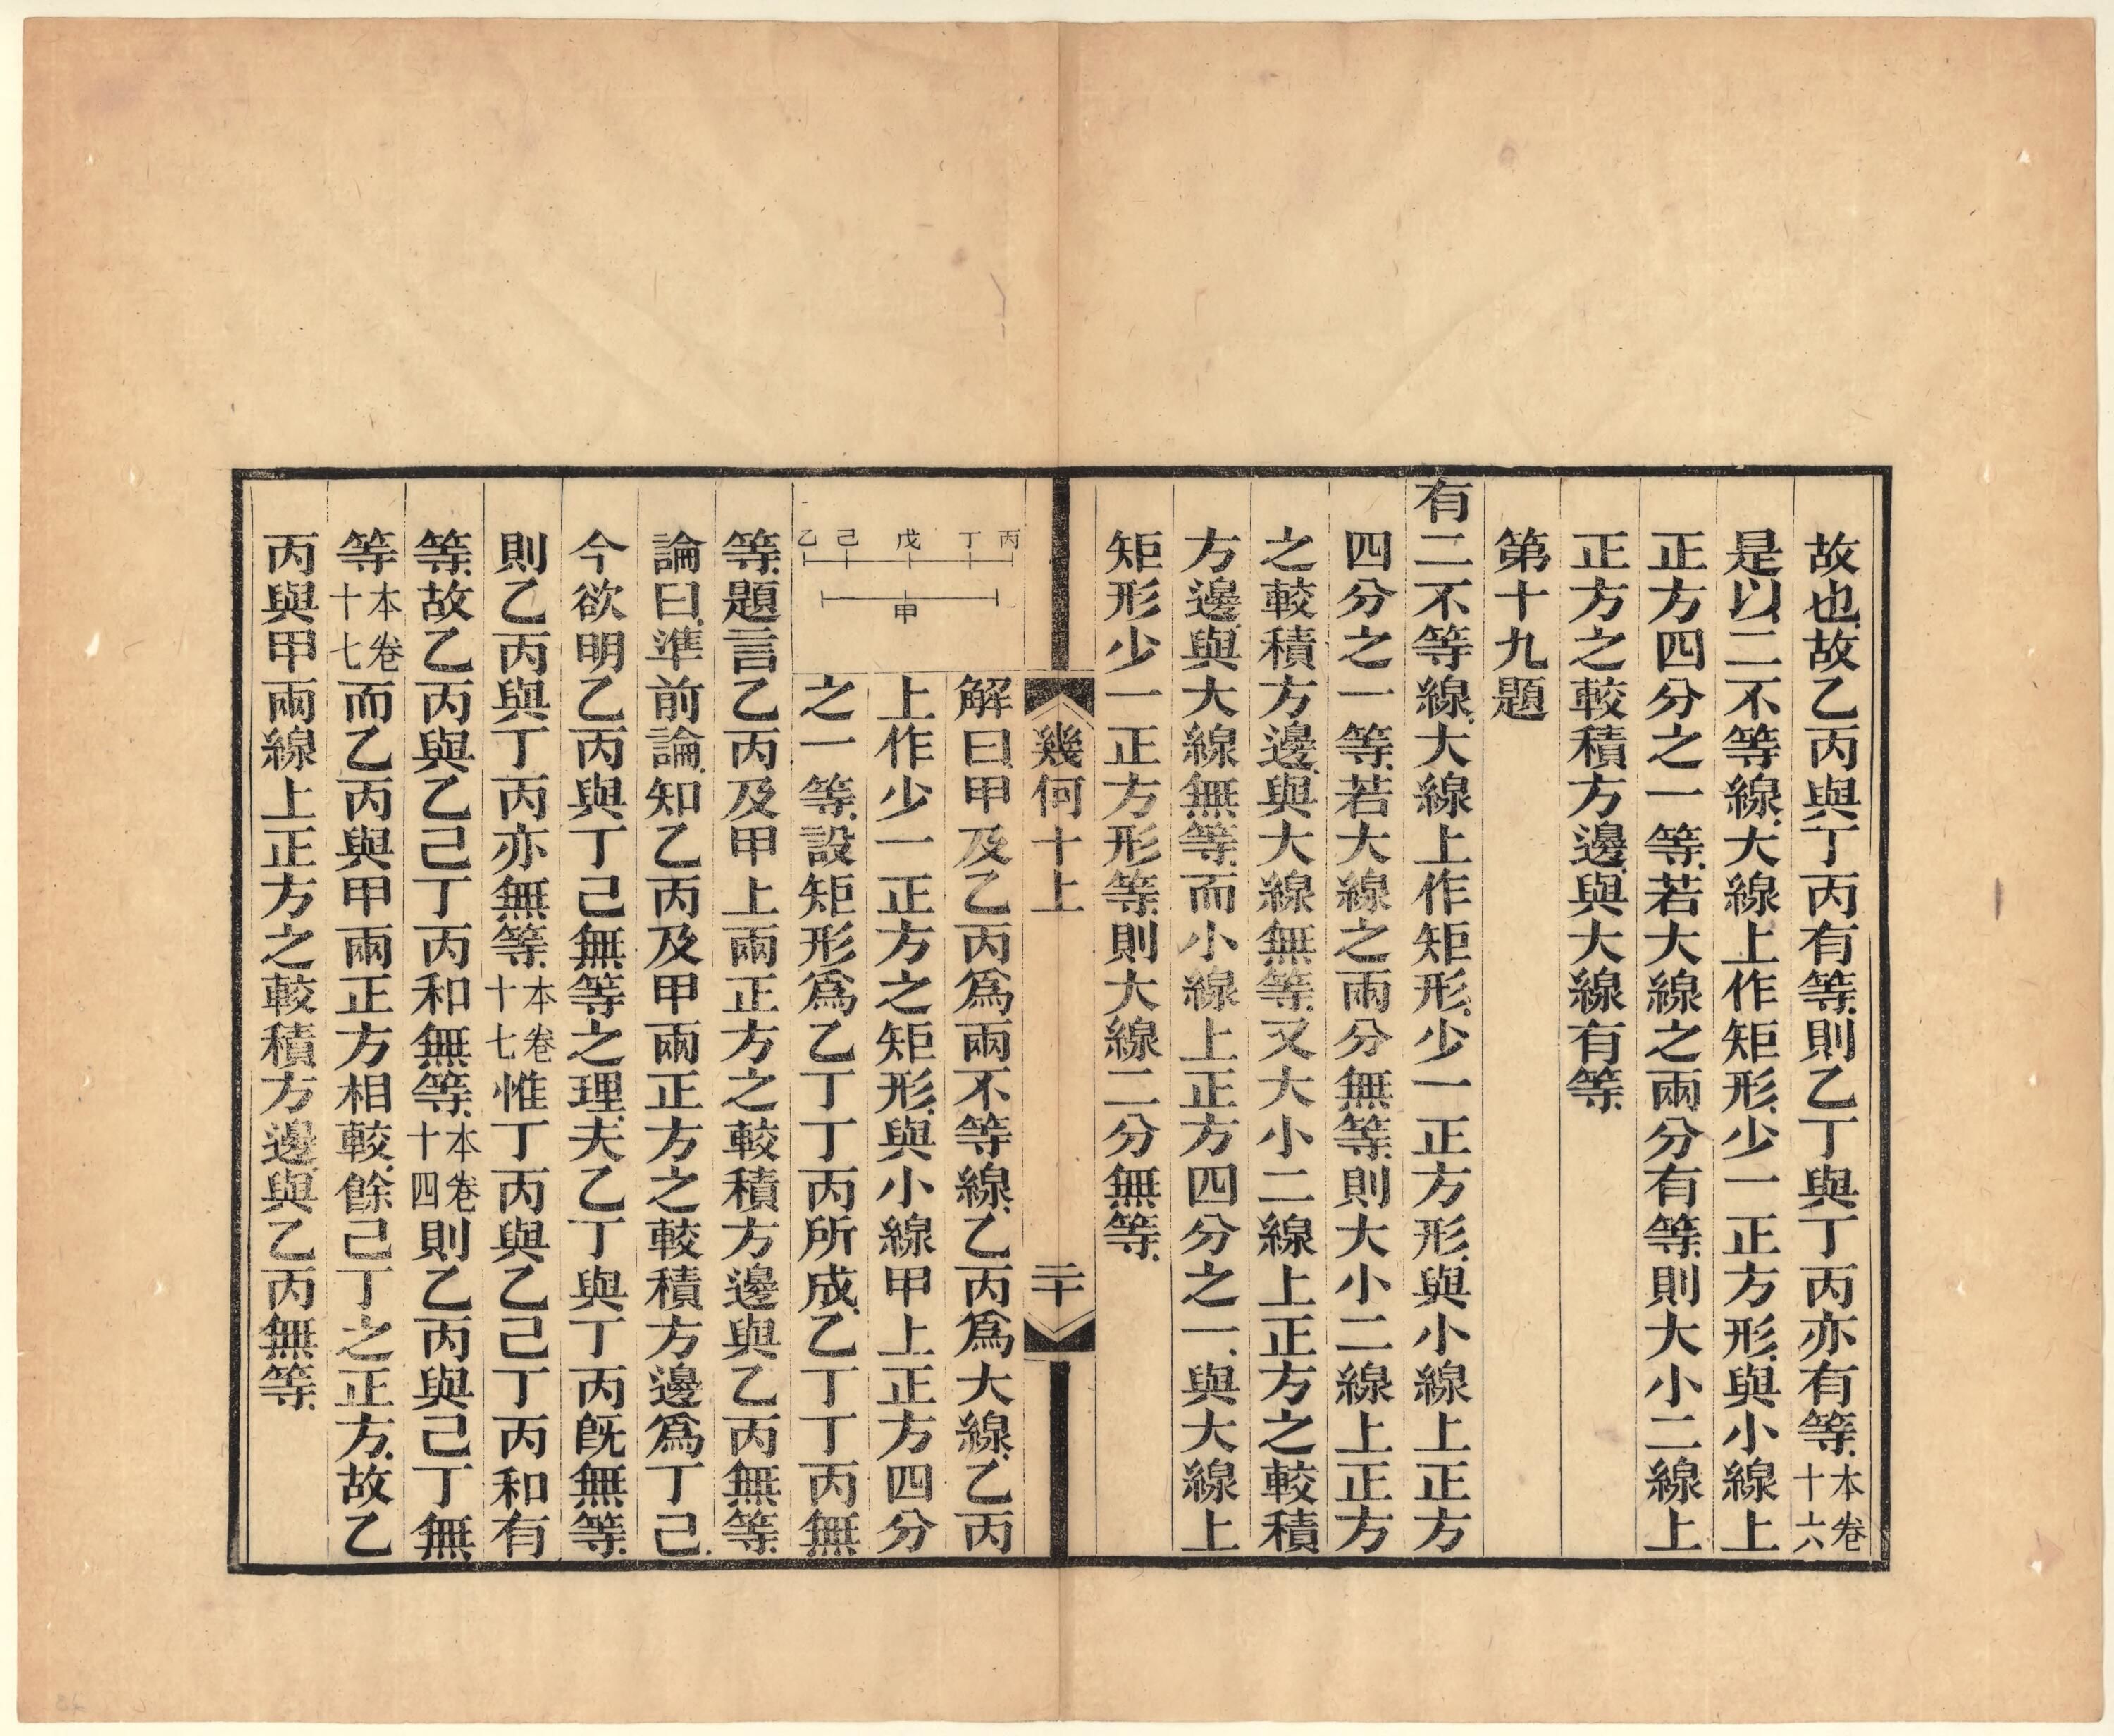 故也故乙丙與丁丙有等則乙丁與丁丙亦有等本卷十六
是以二不等線大線上作矩形少一正方形與小線上
正方四分之一等若大線之兩分有等則大小二線上
正方之較積方邊與大線有等
第十九題
有二不等線大線上作矩形少一正方形與小線上正方
四分之一等若大線之兩分無等則大小二線上正方
之較積方邊與大線無等又大小二線上正方之較積
方邊與大線無等而小線上正方四分之一與大線上
矩形少一正方形等則大線二分無等
幾何十上
二十
丙
丁
戊
己
乙
甲
解曰甲及乙丙爲兩不等線乙丙爲大線乙丙
上作少一正方之矩形與小線甲上正方四分
之一等設矩形爲乙丁丁丙所成乙丁丁丙無
等題言乙丙及甲上兩正方之較積方邊與乙丙無等
論曰準前論知乙丙及甲兩正方之較積方邊爲丁己
今欲明乙丙與丁己無等之理夫乙丁與丁丙旣無等
則乙丙與丁丙亦無等本卷十七惟丁丙與乙己丁丙和有
等故乙丙與乙己丁丙和無等本卷十四則乙丙與己丁無
等本卷十七而乙丙與甲兩正方相較餘己丁之正方故乙
丙與甲兩線上正方之較積方邊與乙丙無等